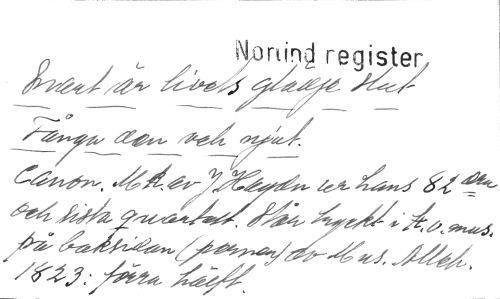 Norlind register
Snart är livets glädje slut
Fånga den och njut.
Canon. Mk. av J Haydn ur hans 82 dra
och sista quartett. Står tryckt i st. o. mus.
på baksidan (permen) av Mus. Alleh.
1823: förra hälft.